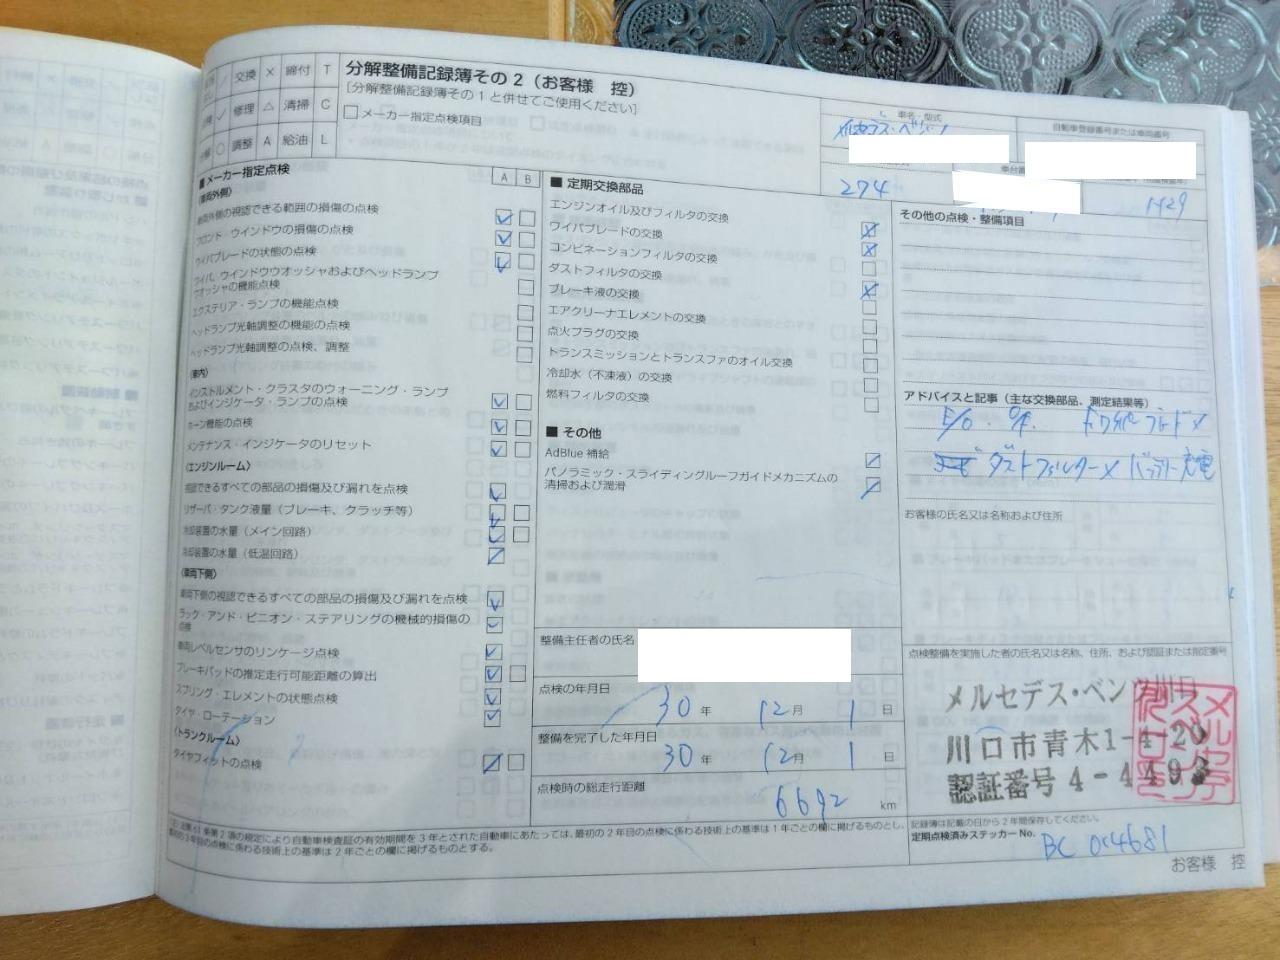 交換 × 締付 T
修理 △ 清掃 C
調整 A 給油 L
分解整備記録簿その2(お客様 控)
[分解整備記録簿その1と併せてご使用ください]
□メーカー指定点検項目
車名・型式
自動車登録番号または車両番号
274
1429
■メーカー指定点検
A B
(車両外側)
車両外側の視認できる範囲の損傷の点検
フロント・ウインドウの損傷の点検
ワイパブレードの状態の点検
ワイパ、ウインドウウオッシャおよびヘッドランプ
ウオッシャの機能点検
エクステリア・ランプの機能点検
ヘッドランプ光軸調整の機能の点検
ヘッドランプ光軸調整の点検、調整
(車内)
インストルメント・クラスタのウォーニング・ランプ
およびインジケータ・ランプの点検
ホーン機能の点検
メンテナンス・インジケータのリセット
(エンジンルーム)
視認できるすべての部品の損傷及び漏れを点検
リザーバ・タンク液量(ブレーキ、クラッチ等)
冷却装置の水量(メイン回路)
冷却装置の水量(低温回路)
(車両下側)
車両下側の視認できるすべての部品の損傷及び漏れを点検
ラック・アンド・ピニオン・ステアリングの機械的損傷の
点検
車両レベルセンサのリンケージ点検
ブレーキパッドの推定走行可能距離の算出
スプリング・エレメントの状態点検
タイヤ・ローテーション
(トランクルーム)
タイヤフィットの点検
■ 定期交換部品
エンジンオイル及びフィルタの交換
ワイパブレードの交換
コンビネーションフィルタの交換
ダストフィルタの交換
ブレーキ液の交換
エアクリーナエレメントの交換
点火プラグの交換
トランスミッションとトランスファのオイル交換
冷却水(不凍液)の交換
燃料フィルタの交換
■ その他
AdBlue 補給
パノラミック・スライディングルーフガイドメカニズムの
清掃および潤滑
整備主任者の氏名
点検の年月日
30 年 12 月 1 日
整備を完了した年月日
30 年 12 月 1 日
点検時の総走行距離
6692 km
その他の点検・整備項目
アドバイスと記事(主な交換部品、測定結果等)
E/O. O/F. F ワイパーブレード ×
ダストフィルター × バッテリー充電
お客様の氏名又は名称および住所
点検整備を実施した者の氏名又は名称、住所、および認証または指定番号
メルセデス・ベンツ川口
川口市青木1-4-20
認証番号 4-4493
記録簿は記載の日から2年間保存してください。
定期点検済みステッカー No. BC 004681
お客様 控